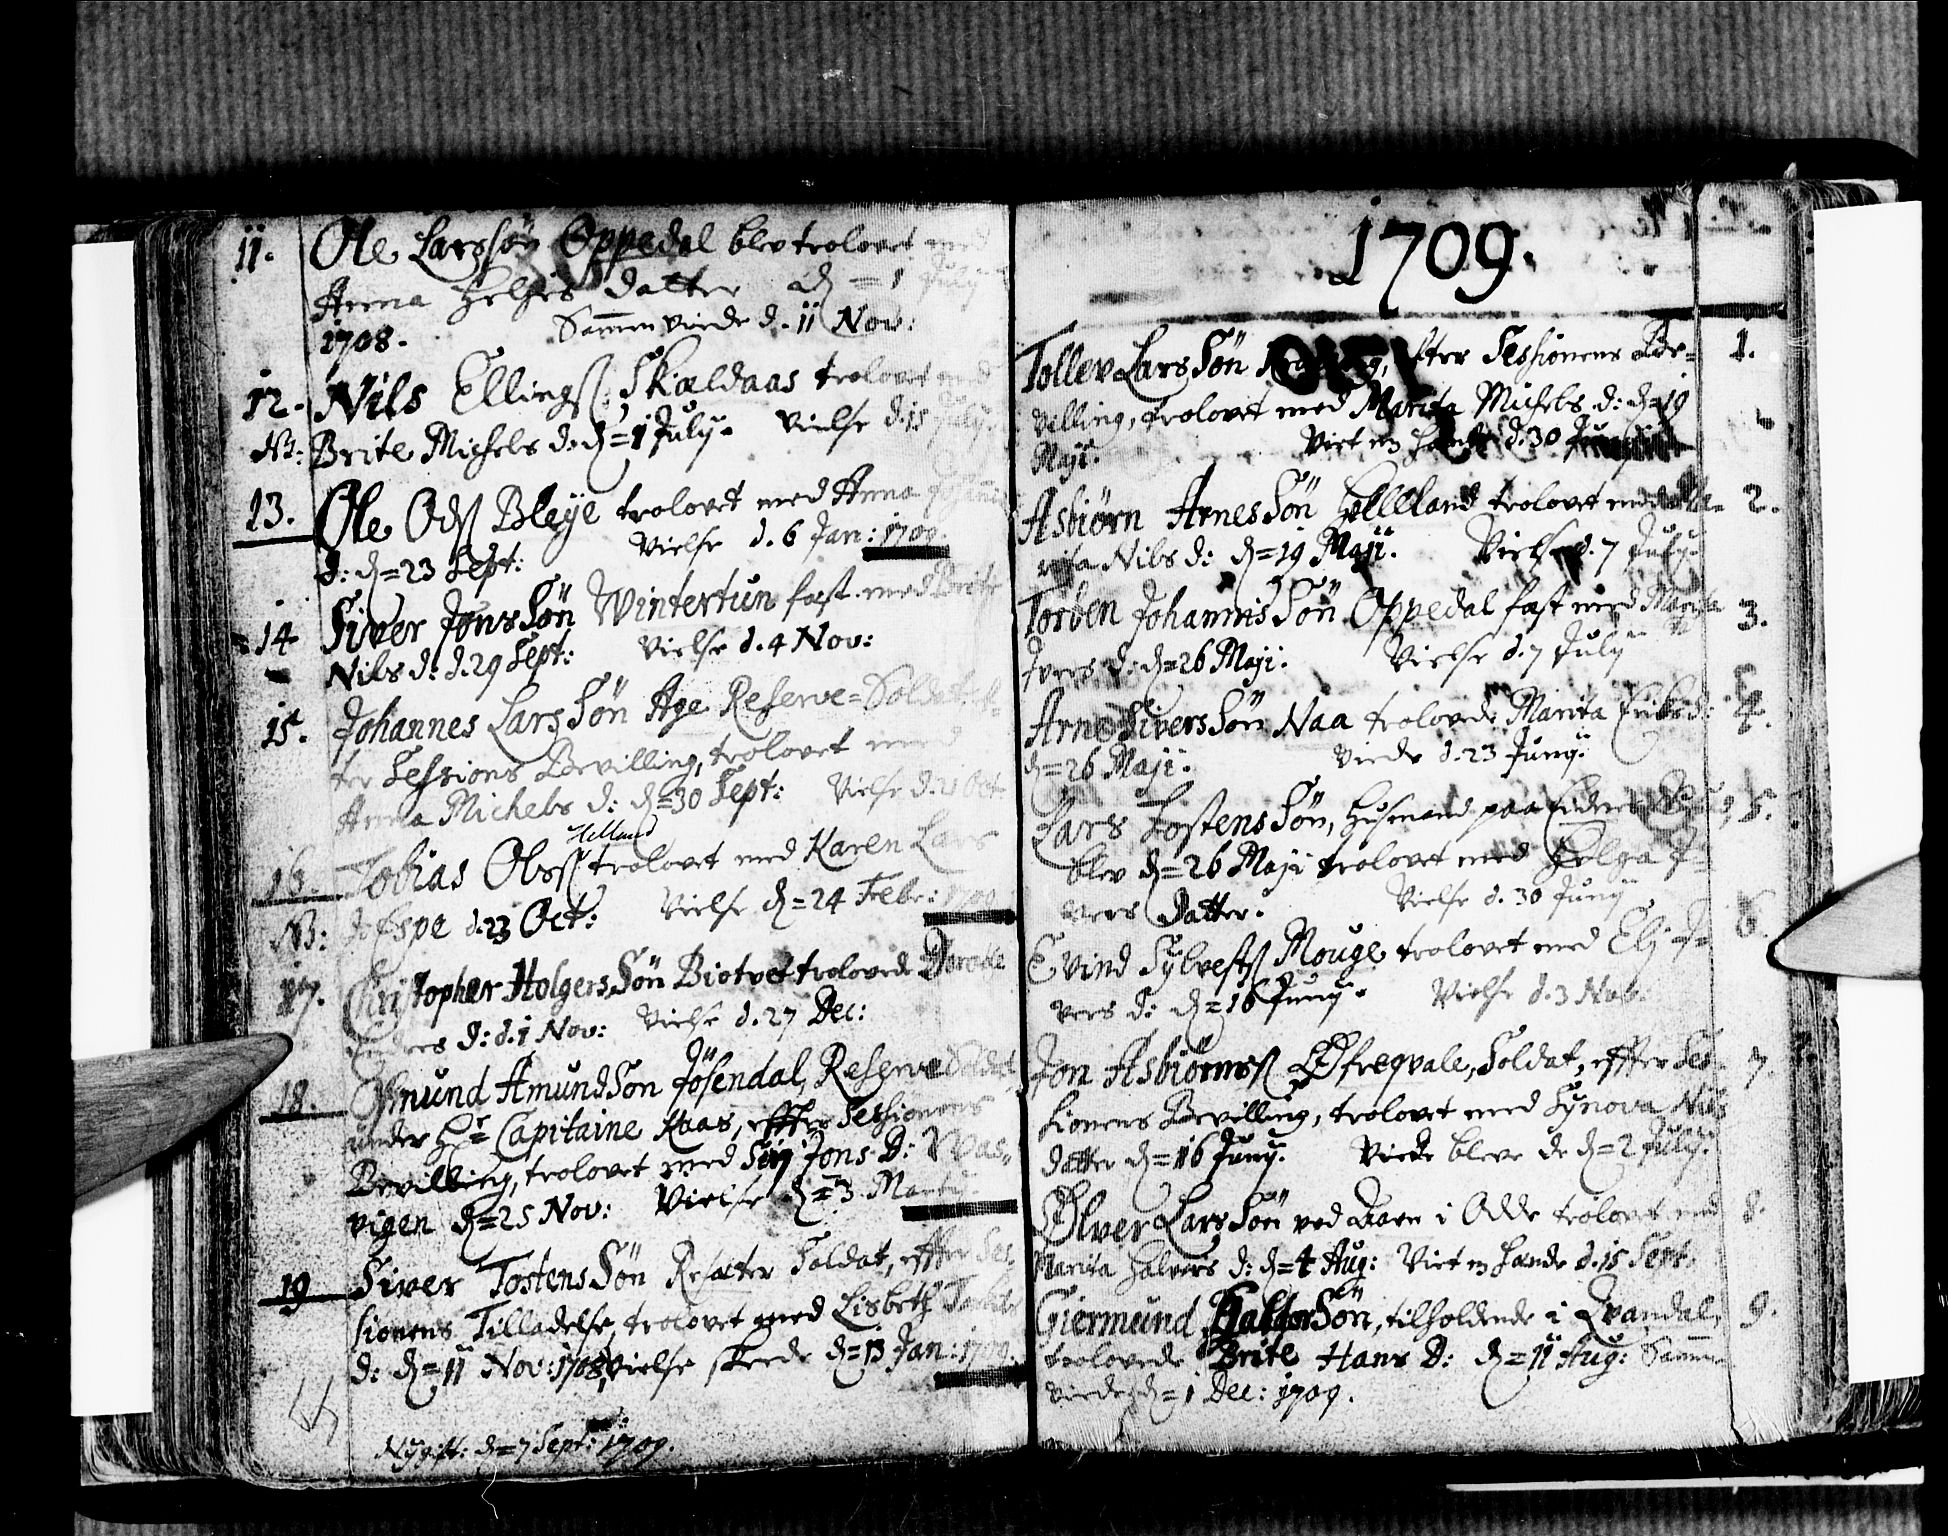 11. Ole Larssøn Oppedal blev trolovet med
Anna Helges datter dn = 1 July
1708. Sammenviede d. 11 Nov:
12. Nils Ellingsß: Skieldaas trolovet med
NB: Brite Michels d: dn = 1 July. Vielse d. 15 July.
13. Ole Odsß Bleÿe trolovet med Anna
d: dn = 23 Sept: Vielse d. 6 Jan: 1709.
14 Siver JonsSøn Wintertun fæst. med Brite
Nils d: d. 29 Sept: Vielse d. 4 Nov:
15. Johannes LarsSøn Age Reserve-Soldat
ter Sessions Bevilling, trolovet med
Anna Michels d: dn = 30 Sept: Vielse d. 21 Oct
Helland
16. Tobias Olsß trolovet med Karen Lars
NB: Jespe d. 23 Oct: Vielse dn = 24 Febr: 1709
17. Christopher HolgersSøn Biotvet trolovede
Enders d: d. 1 Nov: Vielse d. 27 Dec:
18. Osmund AmundSøn Jösendal, Reserve Soldat
under Hr Capitaine Kaas, effter Sessionens
Bevilling, trolovet med Siri Jons D: Vas-
vigen dn = 25 Nov: Vielse dn = 3 Martÿ
19 Siver TostensSön Resæter Soldat, effter Ses-
sionens Tilladelse, trolovet med Lisbeth
d: dn = 11 Nov: 1708, Vielse skeede dn = 13 Jan: 1709.
Nÿgift: dn = 7 Sept: 1709.
1709.
Tollev LarsSön effter Sessionens Be- 1.
villing, trolovet med Marita Michels d: dn = 19
Maji. Viet d. 30
Asbiørn ArnesSön Hellland trolovet med Ma- 2.
rita Nils d: dn = 19 Maji. Vielse d. 7 July.
Torben JohannisSön Oppedal fæst med Marita 3.
Ivers d: dn = 26 Maji. Vielse d. 7 July
Arne SiversSøn Naa trolovede Marita Eriks d: 4.
dn = 26 Maji. Viede d. 23 Junÿ.
Lars TostensSön, Husmand paa 5.
blev dn = 26 Maji trolovet med Helga I-
vers Datter. Vielse d. 30 Juny
Evind Sylvestß Mouge trolovet med Eli I- 6.
vers d: dn = 16 Junÿ. Vielse d. 3 Nov.
Jon Asbiørnsß Soldat, effter Ses- 7.
sionens Bevilling, trolovet med Synova Nils
datter dn = 16 Junÿ. Viede bleve de dn = 2 Julÿ.
Ølver LarsSön ved i Odde trolovet med 8.
Marita Halvors d: dn = 4 Aug: Viet d. 15 Sept.
Giermund Sön, tilholdende i Qvandal, 9.
trolovede Brite Hans D: dn = 11 Aug: Sammen-
viede dn = 1 Dec: 1709.